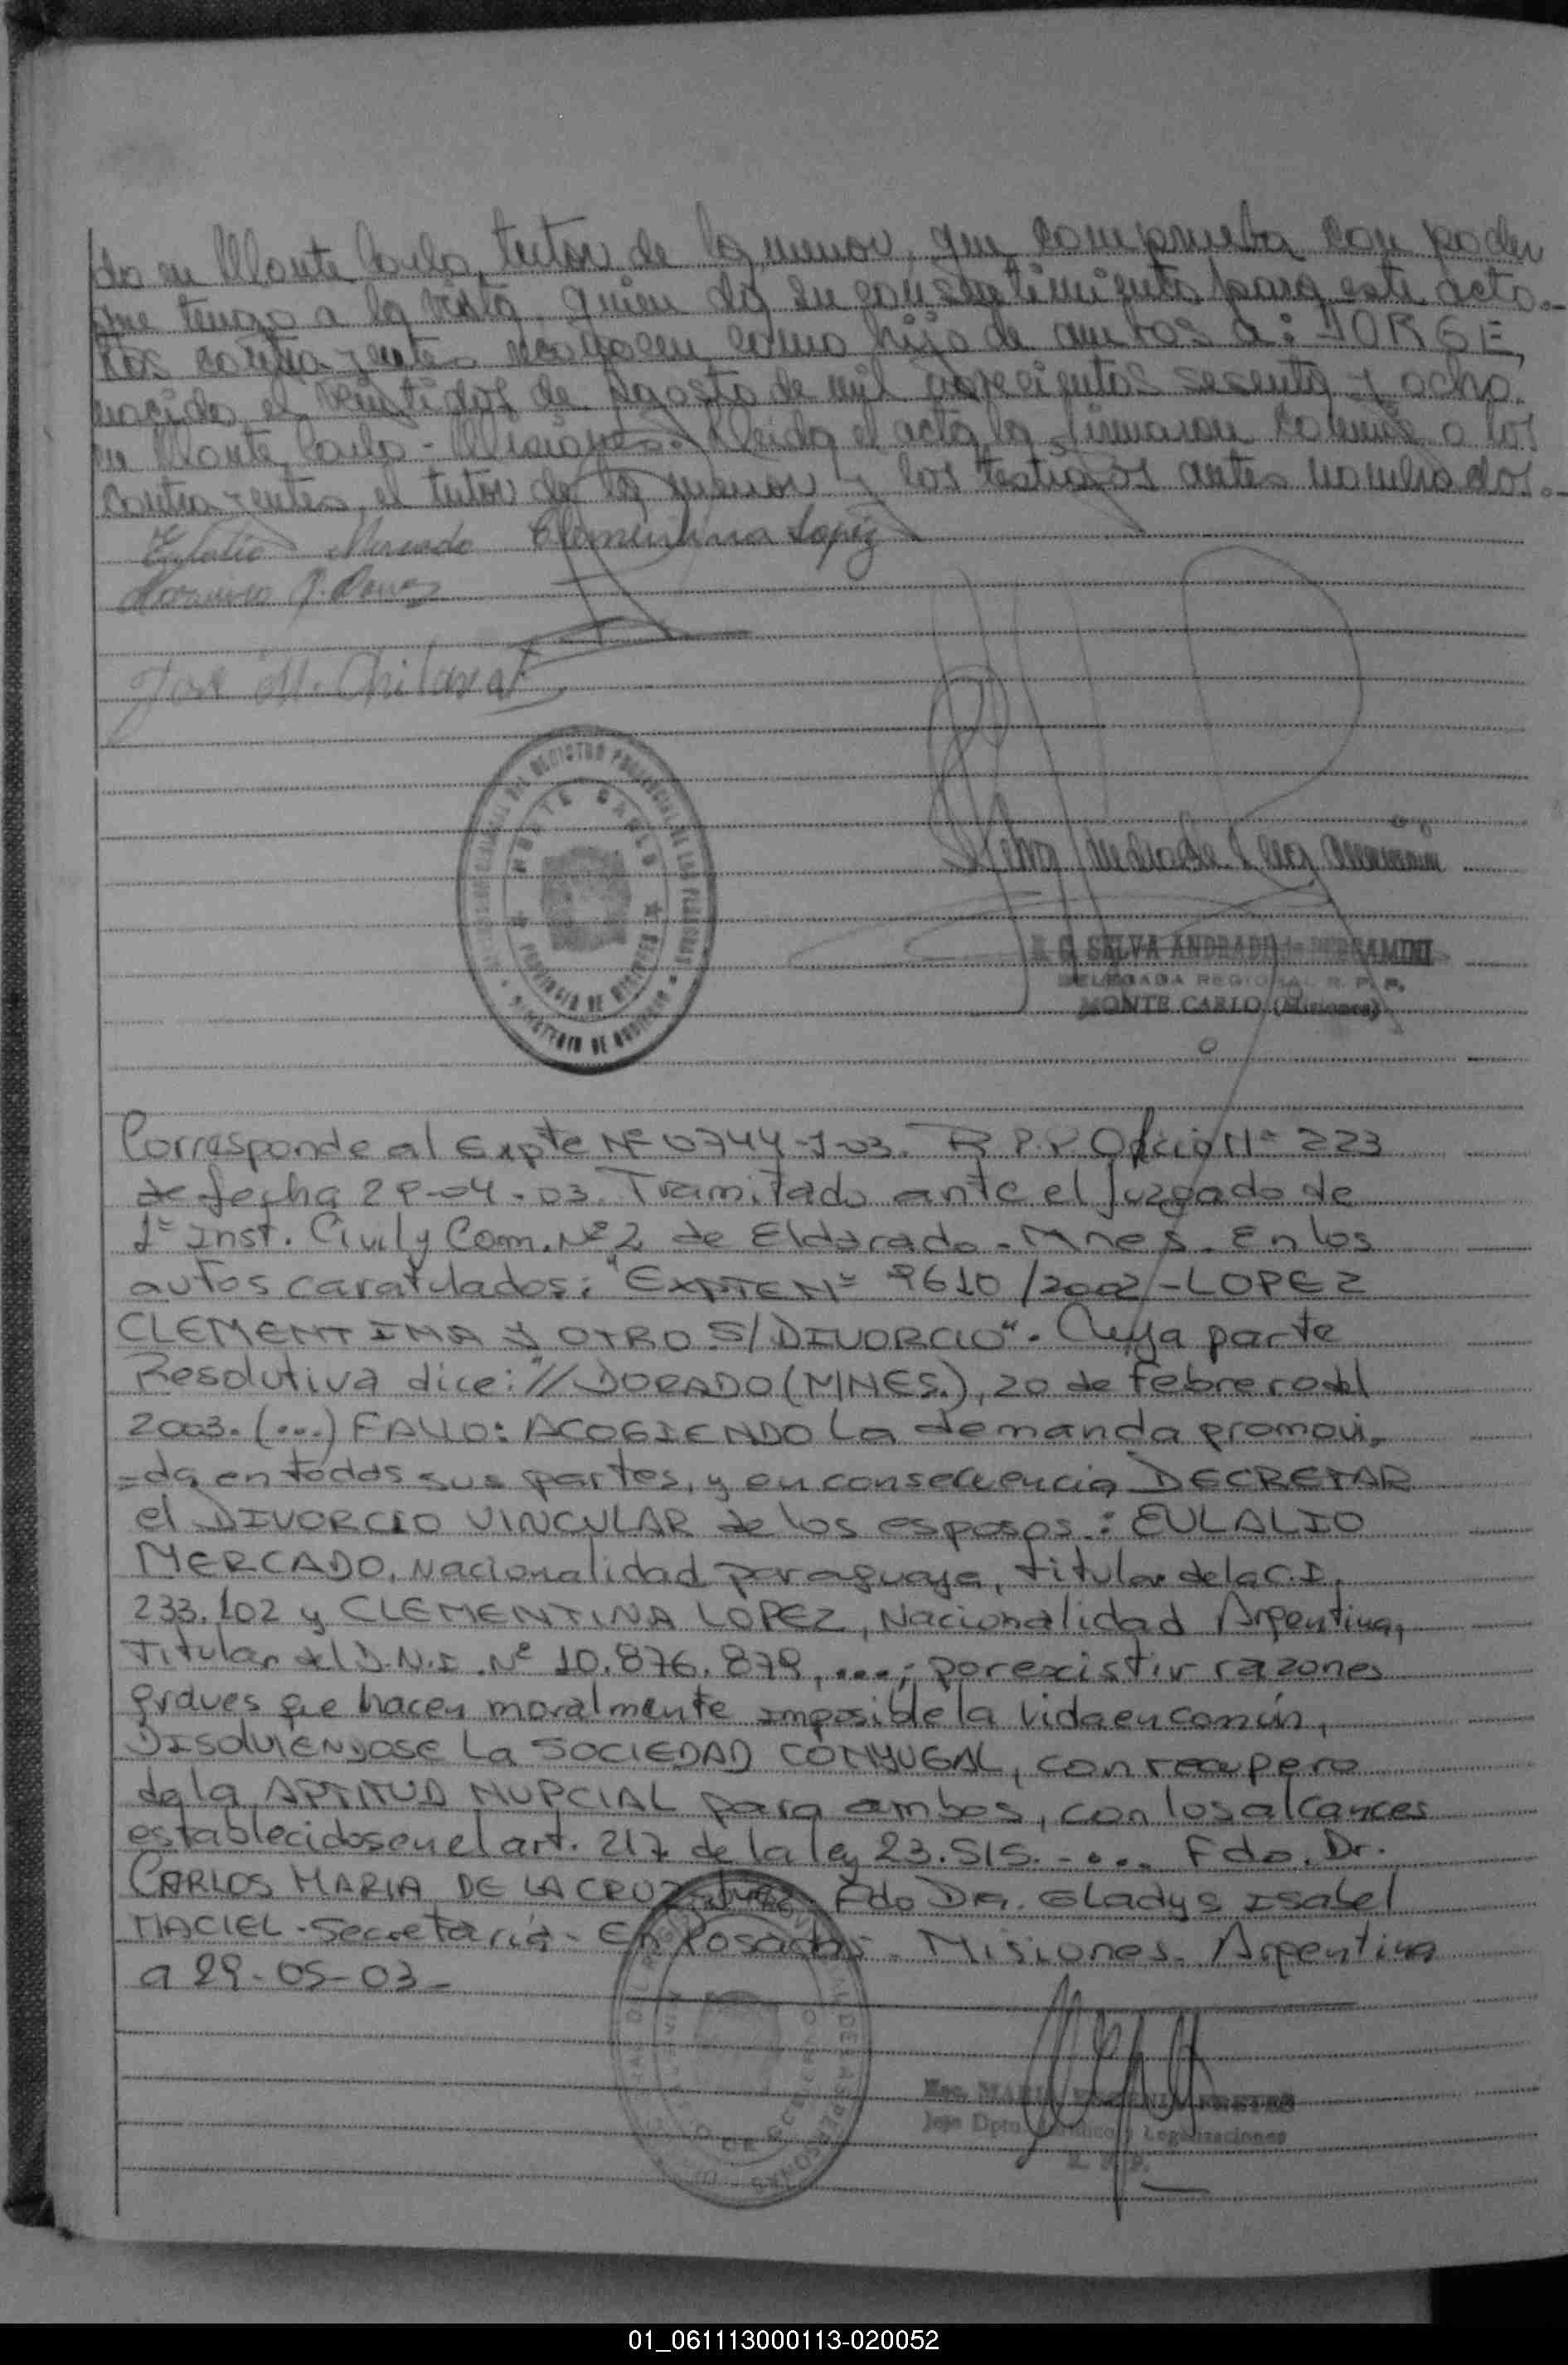 do en Monte Carlo, tutor de la menor, que comprueba con poder
que tengo a la vista, quien da su consentimiento para este acto.-
Los contrayentes reconocen como hijo de ambos a: JORGE,
nacido el veintidos de Agosto de mil novecientos sesenta y ocho
en Monte Carlo - Misiones. Leida el acta la firmaron conmigo los
contrayentes, el tutor de la menor y los testigos antes nombrados.-
Eulalio Mercado Clementina Lopez
José M. Chilavert
REGISTRO PROVINCIAL DE LAS PERSONAS
MONTE CARLO
PROVINCIA DE MISIONES
SELVA ANDRADE de BERGAMINI
DELEGADA REGIONAL R. P. P.
MONTE CARLO (Misiones)
Corresponde al Expte Nº 0744-J-03. R.P.P. Oficio Nº 223
de fecha 29-04-03. Tramitado ante el Juzgado de
1º Inst. Civil y Com. Nº 2 de Eldorado - Mnes. En los
autos caratulados: "EXPTE Nº 9610/2002 - LOPEZ
CLEMENTINA y OTRO S/DIVORCIO". Cuya parte
Resolutiva dice: "//DORADO (MNES.), 20 de Febrero del
2003. (...) FALLO: ACOGIENDO La demanda promovi,
=da en todas sus partes, y en consecuencia DECRETAR
el DIVORCIO VINCULAR de los esposos: EULALIO
MERCADO, Nacionalidad paraguaya, titular de la C.I.
233.102 y CLEMENTINA LOPEZ, Nacionalidad Argentina,
Titular del D.N.I. Nº 10.876.879, ...; por existir razones
graves que hacen moralmente imposible la vida en común,
DISOLVIENDOSE La SOCIEDAD CONYUGAL, con recupero
de la APTITUD NUPCIAL para ambos, con los alcances
establecidos en el art. 217 de la ley 23.515. - ... Fdo. Dr.
CARLOS MARIA DE LA CRUZ Juez. Fdo Dra. Gladys Isabel
MACIEL - Secretaria - En Posadas - Misiones - Argentina
a 29-05-03-
Esc. MARIA EUGENIA FRETES
Jefe Dpto. Jurídico y Legalizaciones
R. P. P.
01_061113000113-020052